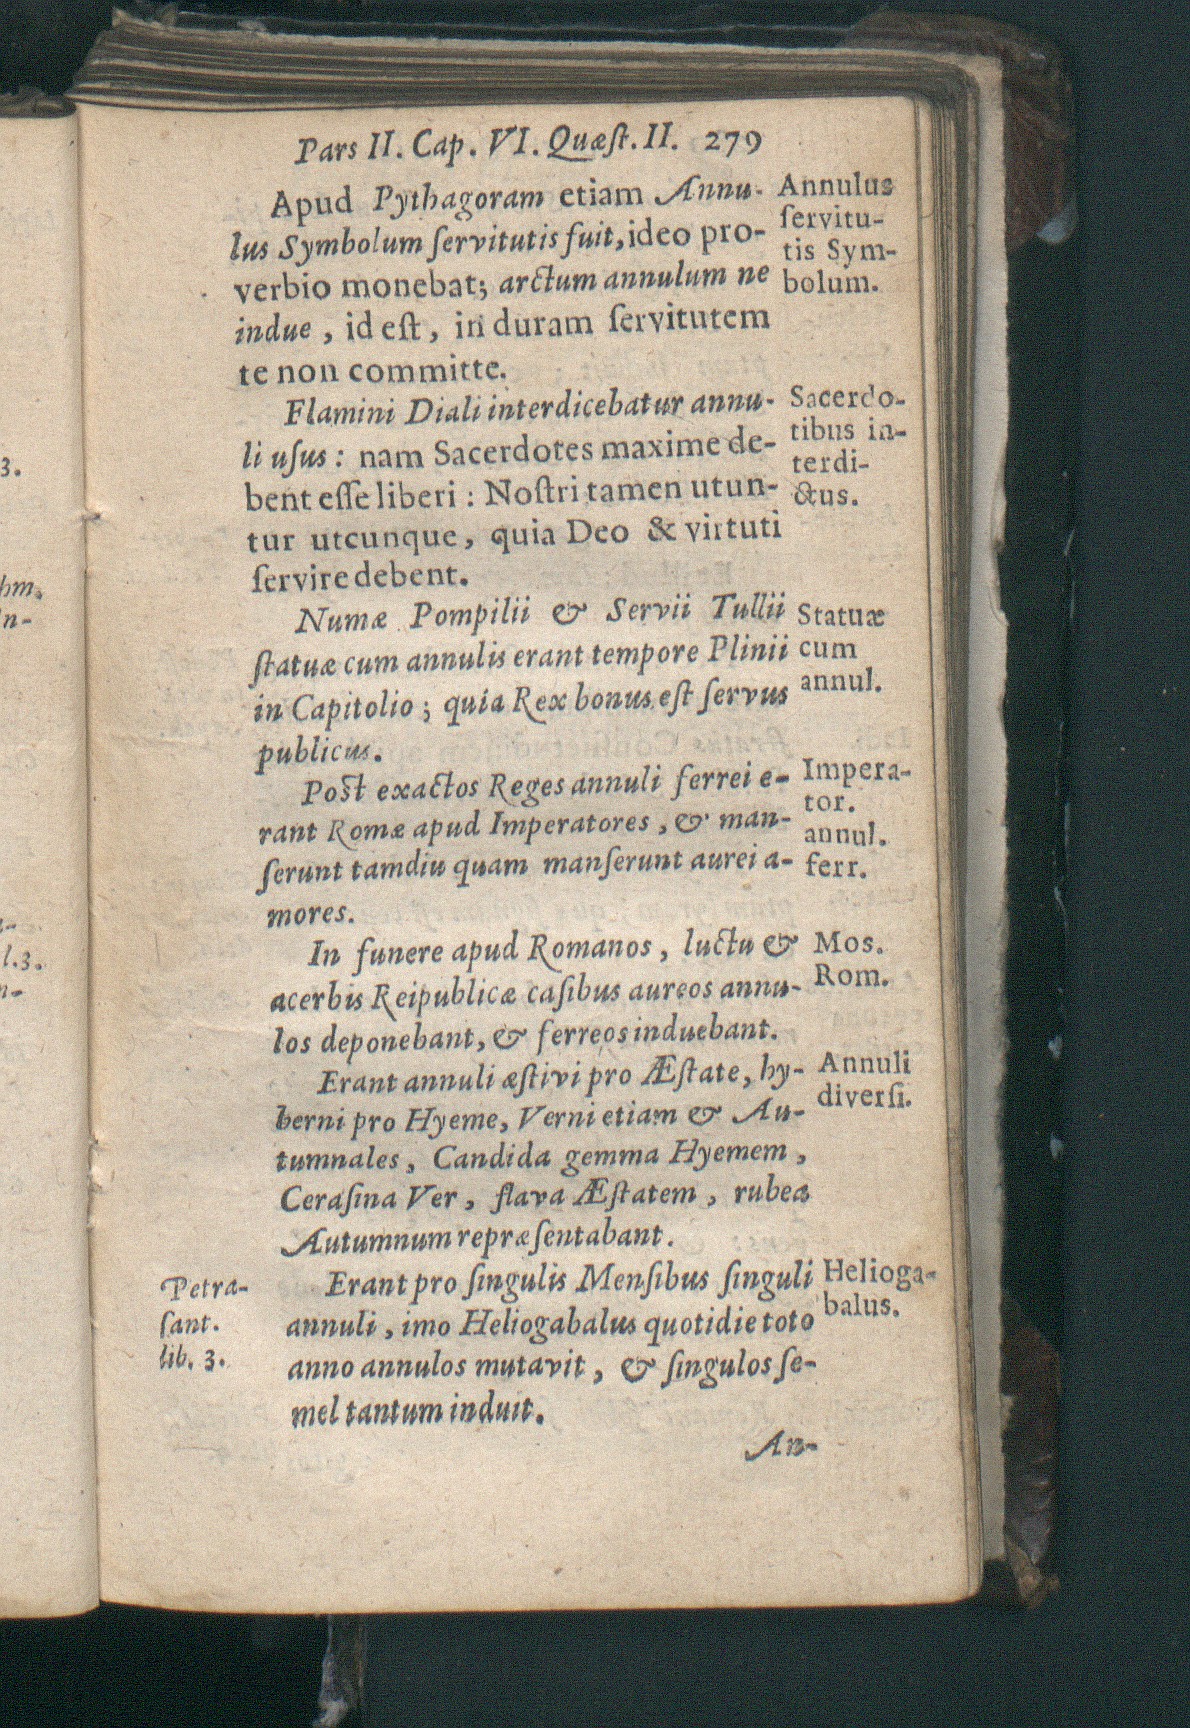 Pars II. Cap. VI. Quæſt. II. 279
Apud Pythagoram etiam Annu-
lus Symbolum ſervitutis fuit, ideo pro-
verbio monebat; arctum annulum ne
indue, id eſt, in duram ſervitutem
te non committe.
Annulus
ſervitu-
tis Sym-
bolum.
Flamini Diali interdicebatur annu-
li uſus: nam Sacerdotes maxime de-
bent eſſe liberi: Noſtri tamen utun-
tur utcunque, quia Deo & virtuti
ſervire debent.
Sacerdo-
tibus in-
terdi-
ctus.
Numæ Pompilii & Servii Tullii
ſtatuæ cum annulis erant tempore Plinii
in Capitolio; quia Rex bonus eſt ſervus
publicus.
Statuæ
cum
annul.
Poſt exactos Reges annuli ferrei e-
rant Romæ apud Imperatores, & man-
ſerunt tamdiu quam manſerunt aurei a-
mores.
Impera-
tor.
annul.
ferr.
In funere apud Romanos, luctu &
acerbis Reipublicæ caſibus aureos annu-
los deponebant, & ferreos induebant.
Mos.
Rom.
Erant annuli æſtivi pro Æſtate, hy-
berni pro Hyeme, Verni etiam & Au-
tumnales, Candida gemma Hyemem,
Ceraſina Ver, flava Æſtatem, rubea
Autumnum repræſentabant.
Annuli
diverſi.
Petra-
ſant.
lib. 3.
Erant pro ſingulis Menſibus ſinguli
annuli, imo Heliogabalus quotidie toto
anno annulos mutavit, & ſingulos ſe-
mel tantum induit.
Helioga-
balus.
An-
3.
hm.
n-
l.3.
n-